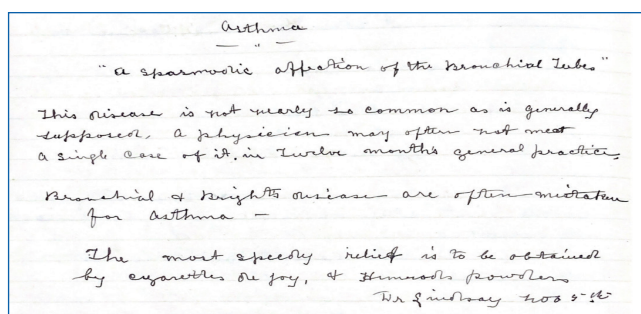 Asthma
"
"A spasmodic affection of the Bronchial Tubes"
This disease is not nearly so common as is generally
supposed, A physician may often not meet
a single case of it, in Twelve months general practice,
Bronchial & Brights disease are often mistaken
for asthma —
The most speedy relief is to be obtained
by cigarettes de joy, & Himrods powders
Dr Lindsay Nov 5th